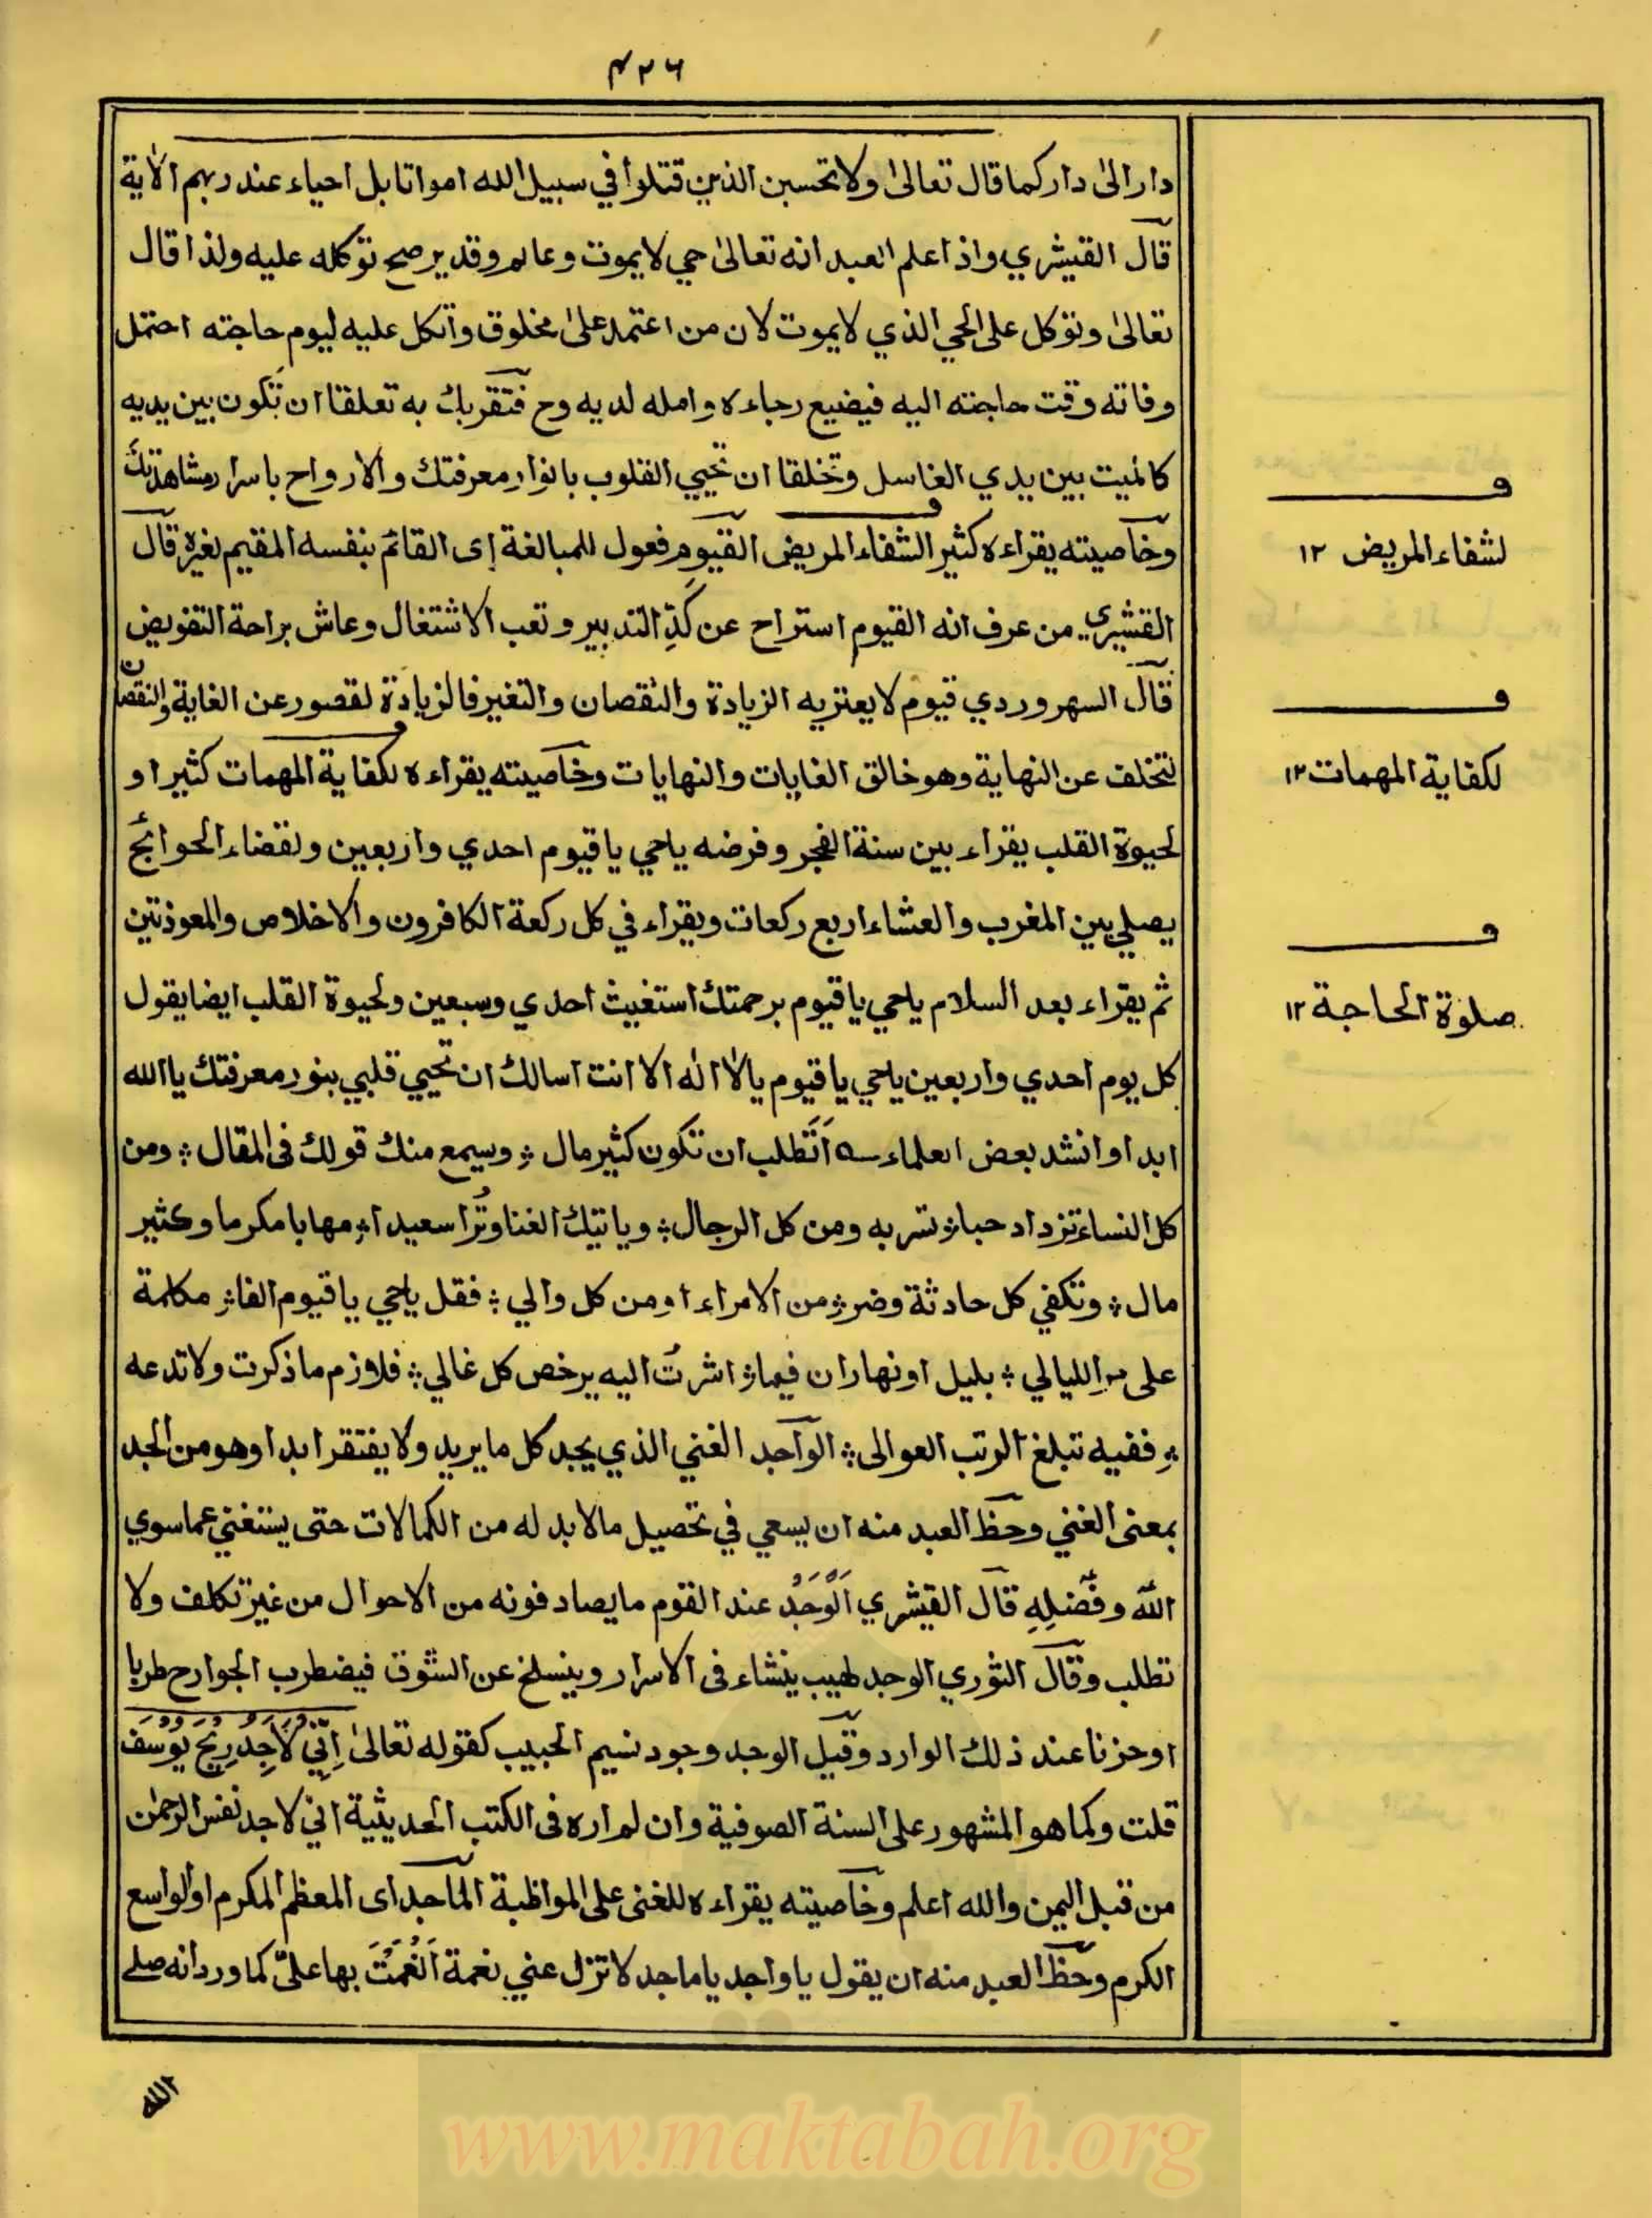 ۴۲۶
دار الىٰ دار كما قال تعالىٰ ولا تحسبن الذين قتلوا في سبيل الله امواتا بل احياء عند ربهم الاٰية
قال القيشري واذا علم العبد انه تعالىٰ حي لا يموت وعالم وقدير صح توكله عليه ولذا قال
تعالىٰ وتوكل على الحي الذي لا يموت لان من اعتمد علىٰ مخلوق واتكل عليه ليوم حاجته احتمل
وفاته وقت حاجته اليه فيضيع رجاءه وامله لديه وح فتقربك به تعلقا ان تكون بين يديه
كالميت بين يدي الغاسل وتخلقا ان تحيي القلوب بانوار معرفتك والارواح باسرار مشاهدتك
وخاصيته يقراءه كثير الشفاء المريض القيوم فعول للمبالغة اى القائم بنفسه المقيم لغيره قال
لشفاء المريض ۱۲
القشيري من عرف انه القيوم استراح عن كدِّ التدبير وتعب الاشتغال وعاش براحة التفويض
قال السهروردي قيوم لا يعتريه الزيادة والنقصان والتغير فالزيادة لقصور عن الغاية والنقصان
لتخلف عن النهاية وهو خالق الغايات والنهايات وخاصيته يقراءه لكفاية المهمات كثيرا و
لكفاية المهمات ۱۲
لحيوة القلب يقراء بين سنة الفجر وفرضه يا حي يا قيوم احدي واربعين ولقضاء الحوائج
يصلي بين المغرب والعشاء اربع ركعات ويقراء في كل ركعة الكافرون والاخلاص والمعوذتين
ثم يقراء بعد السلام يا حي يا قيوم برحمتك استغيث احدي وسبعين ولحيوة القلب ايضا يقول
صلوٰة الحاجة ۱۲
كل يوم احدي واربعين يا حي يا قيوم يا لا اله الا انت اسالك ان تحيي قلبي بنور معرفتك يا الله
ابدا وانشد بعض العلماء ؎ اَتَطلب ان تكون كثير مال ؞ ويسمع منك قولك فى المقال ؞ ومن
كل النساء تزداد حبا ؞ تسر به ومن كل الرجال ؞ وياتيك الغنا وتُرا سعيدا ؞ مهابا مكرما وكثير
مال ؞ وتكفي كل حادثة وضر ؞ من الامراء او من كل والي ؞ فقل يا حي يا قيوم الفا ؞ مكلمة
على مر الليالي ؞ بليل او نهار ان فيما ؞ اشرتُ اليه يرخص كل غالي ؞ فلازم ما ذكرت ولا تدعه
؞ ففيه تبلغ الرتب العوالى ؞ الواجد الغني الذي يجد كل ما يريد ولا يفتقر ابدا وهو من الجد
بمعنى الغني وحظ العبد منه ان يسعي في تحصيل ما لا بد له من الكمالات حتى يستغني عما سوي
الله وفضلِهِ قال القيشري الوَجدُ عند القوم ما يصادفونه من الاحوال من غير تكلف ولا
تطلب وقال الثوري الوجد لهيب ينشاء فى الاسرار وينسلخ عن الشوق فيضطرب الجوارح طربا
او حزنا عند ذلك الوارد وقيل الوجد وجود نسيم الحبيب كقوله تعالىٰ اِنِّي لَاَجِدُ رِيحَ يُوسُفَ
قلت وكما هو المشهور على السنة الصوفية وان لم اره فى الكتب الحديثية اني لاجد نفس الرحمٰن
من قبل اليمن والله اعلم وخاصيته يقراءه للغنى على المواظبة الماجد اى المعظم المكرم او الواسع
الكرم وحظ العبد منه ان يقول يا واجد يا ماجد لا تزل عني نعمة اَنْعَمْتَ بها عليّ كما ورد انه صلے
الله
www.maktabah.org